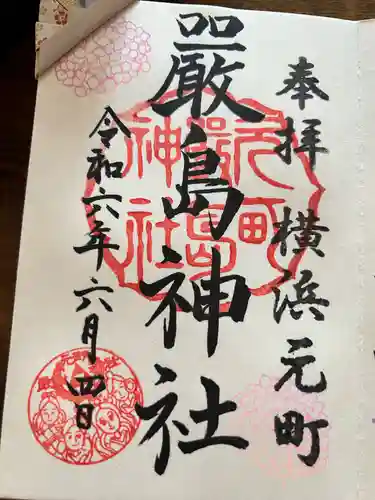 奉拝 横浜元町
嚴島神社
令和六年六月四日
元町
嚴島
神社